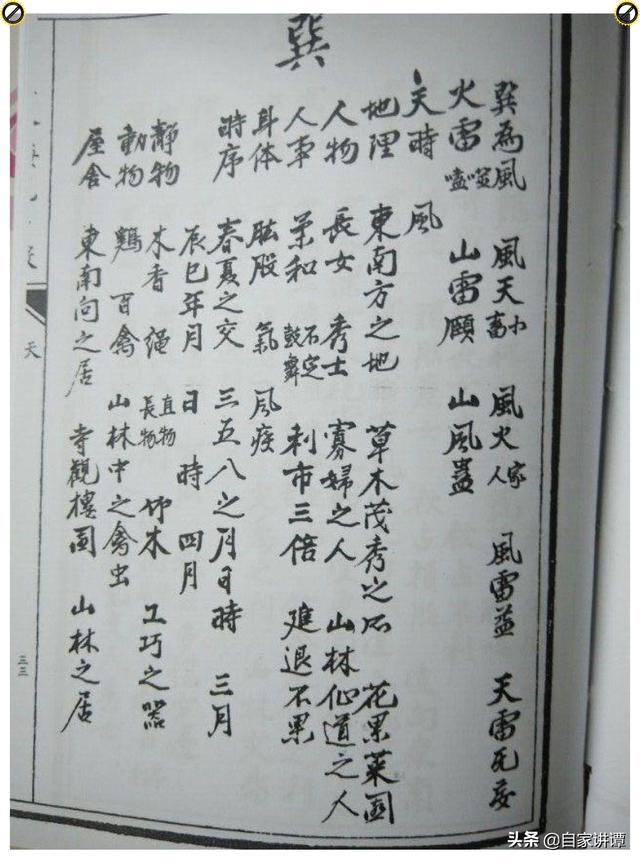 巽
巽為風 風天小畜 風火家人 風雷益 天雷无妄
火雷噬嗑 山雷頤 山風蠱
天時 風
地理 東南方之地 草木茂秀之所 花果菜園
人物 長女 秀士 寡婦之人 山林仙道之人
人事 柔和 不定 鼓舞 利市三倍 進退不果
身体 肱股 氣 風疾
時序 春夏之交 三五八之月日時 三月
辰巳年月日時 四月
靜物 木香 繩 直物 長物 竹木 工巧之器
動物 鶏 百禽 山林中之禽虫
屋舍 東南向之居 寺觀樓園 山林之居
天
三三
头条 @自家讲谭